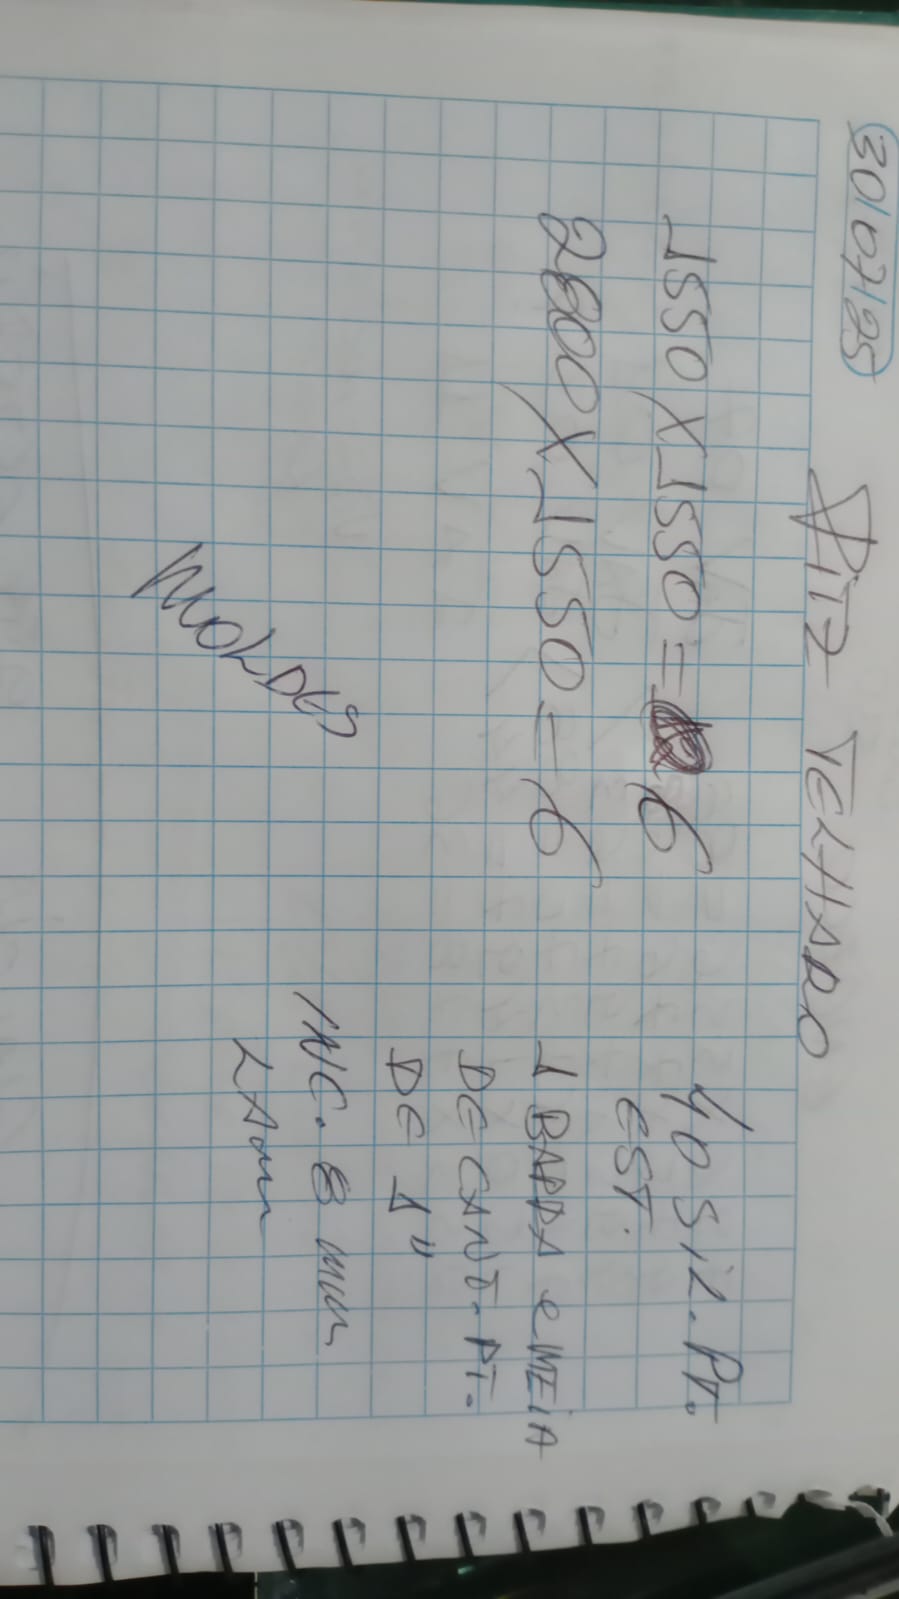 30/07/25
RITZ TELHADO
1550 X 1550 = 6
2600 X 1550 = 6
40 SIL. PT.
EST.
1 BARRA e MEiA
DE CANT. PT.
DE 1"
INC. 8 mm
LAm
MOLDES